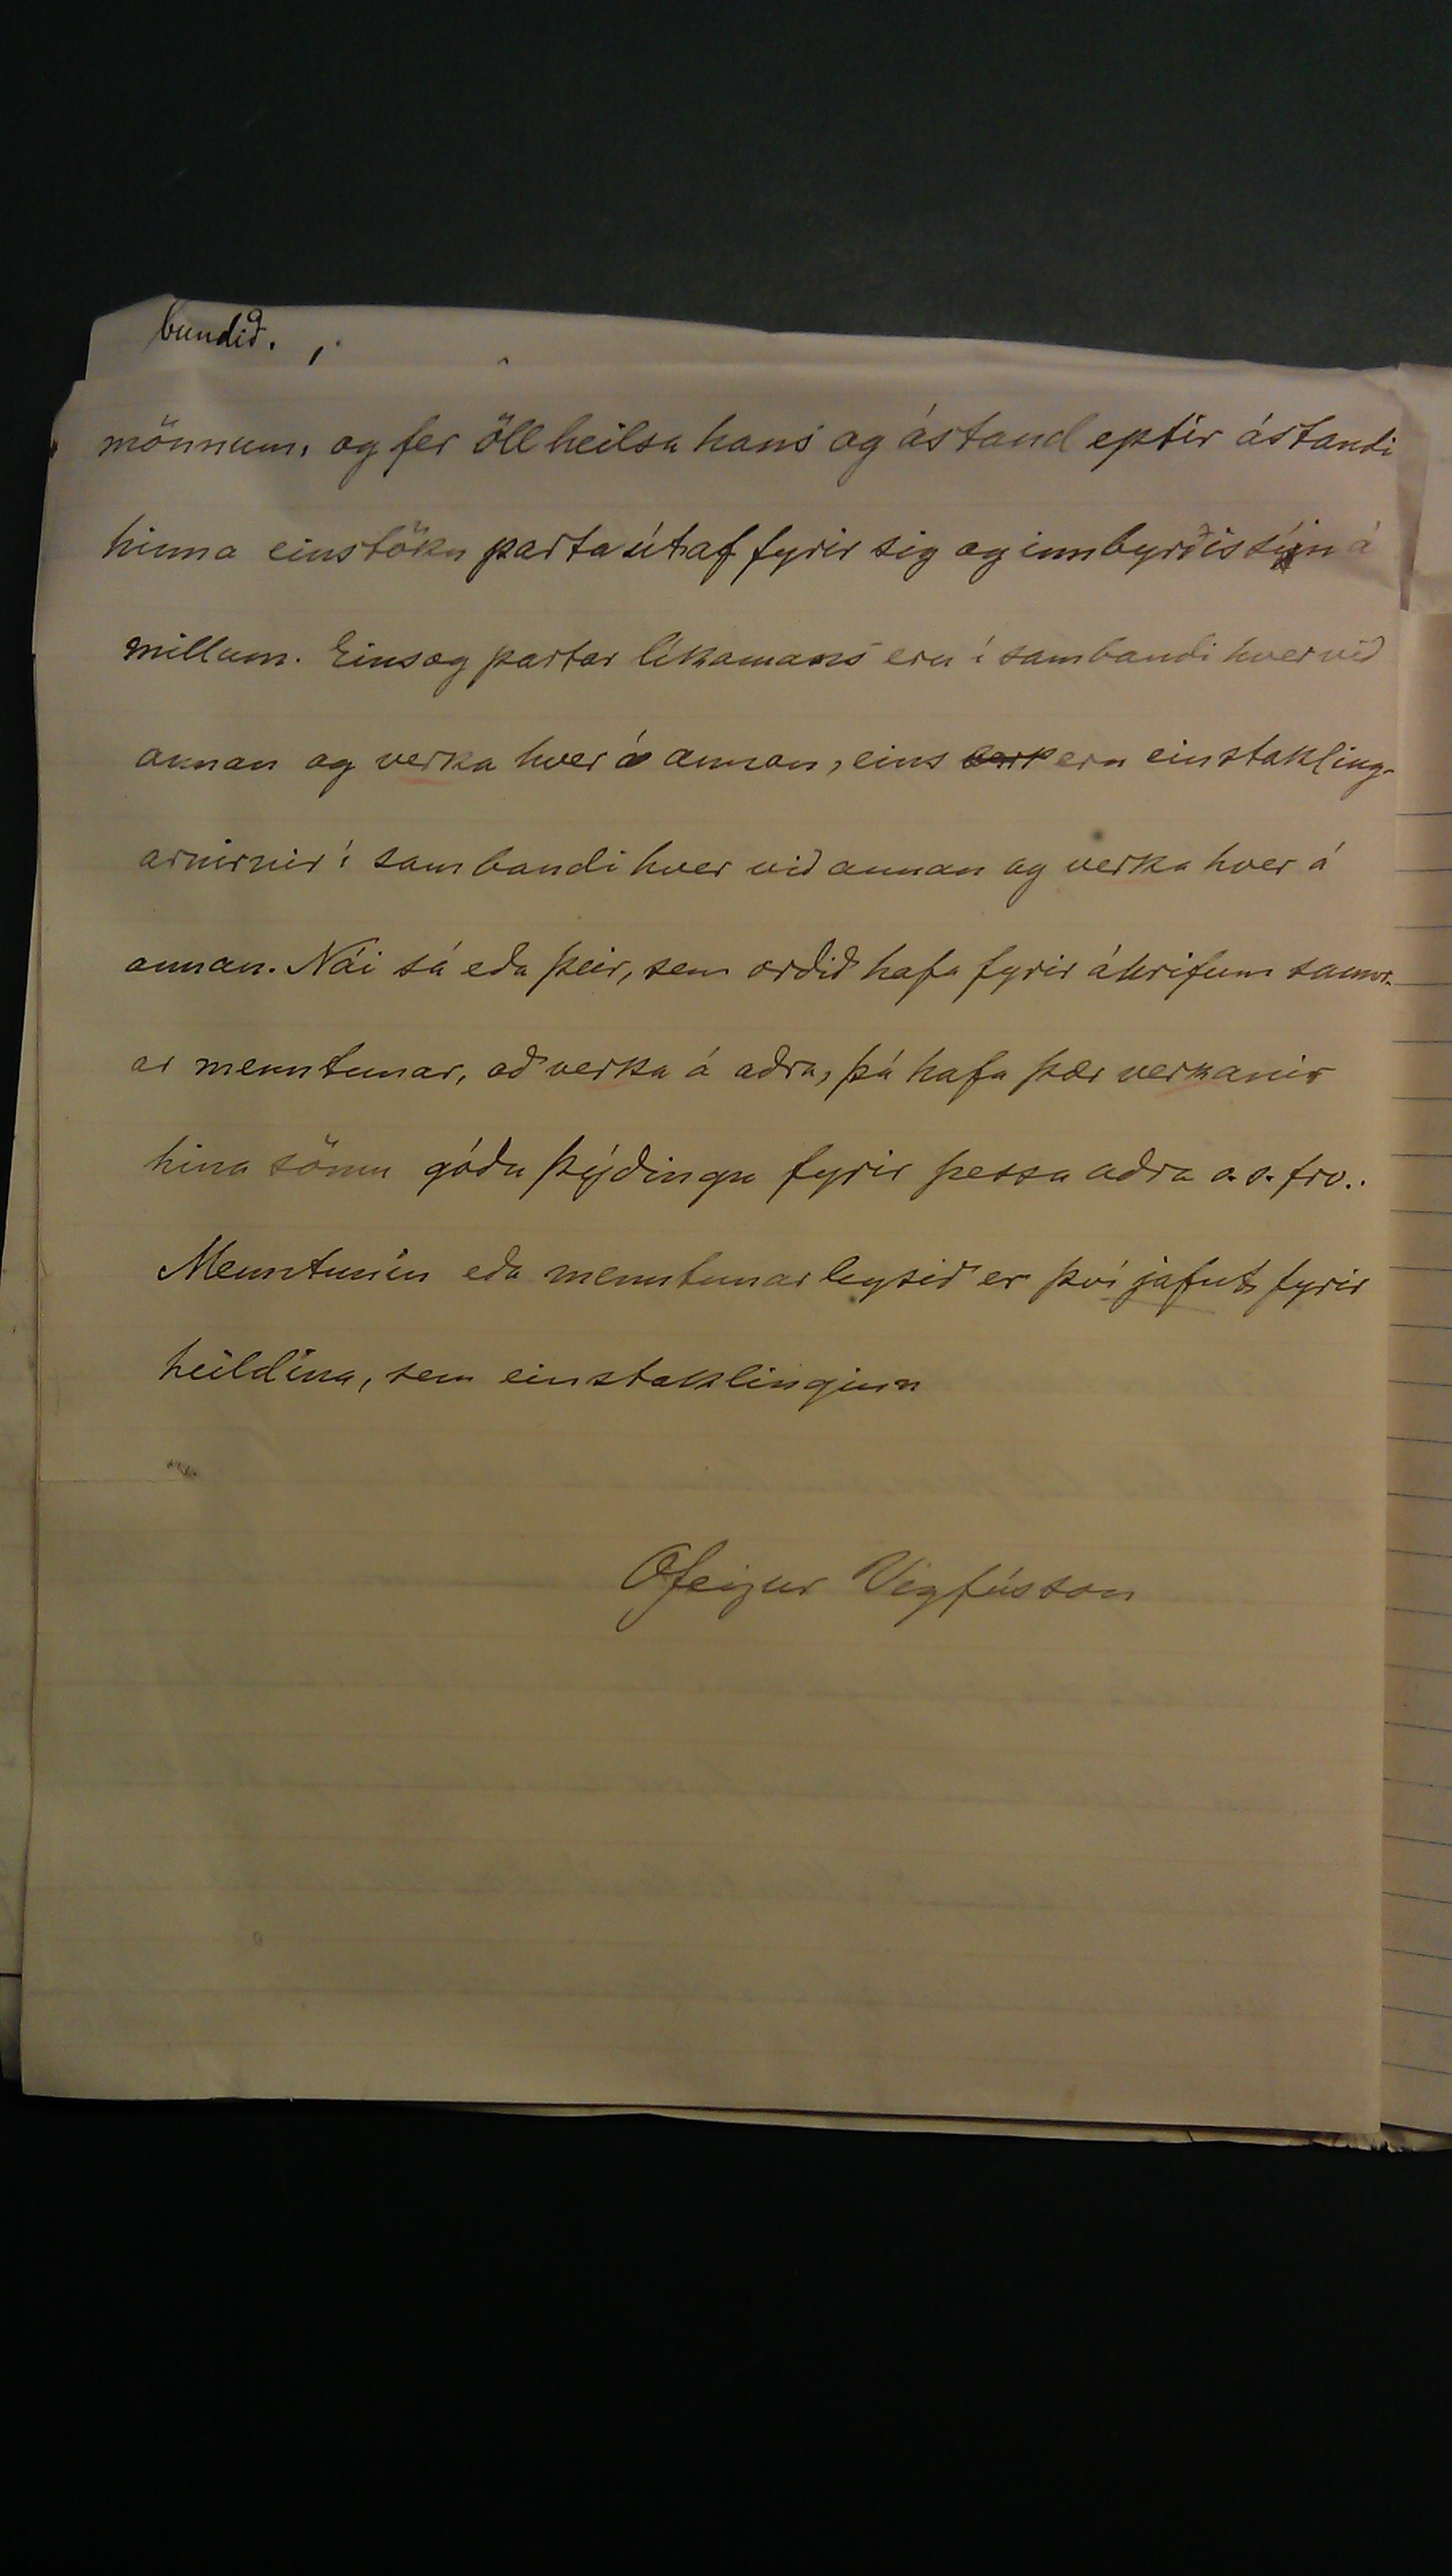 bundið.
mönnum, og fer öll heilsa hans og ástand eptir ástandi
hinna einstöku parta útaf fyrir sig og innbyrðis sín á
millum. Einsog partar líkamans eru í sambandi hver við
annan og verka hver á annan, eins eru einstakling-
arnirnir í sambandi hver við annan og verka hver á
annan. Nái sá eða þeir, sem orðið hafa fyrir áhrifum sannr-
ar menntunar, að verka á aðra, þá hafa þær verkanir
hina sömu góðu þýðingu fyrir þessa aðra o.s.frv..
Menntunin eða menntunarleysið er því jafnt fyrir
heildina, sem einstaklinginn
Ofeigur Vigfússon